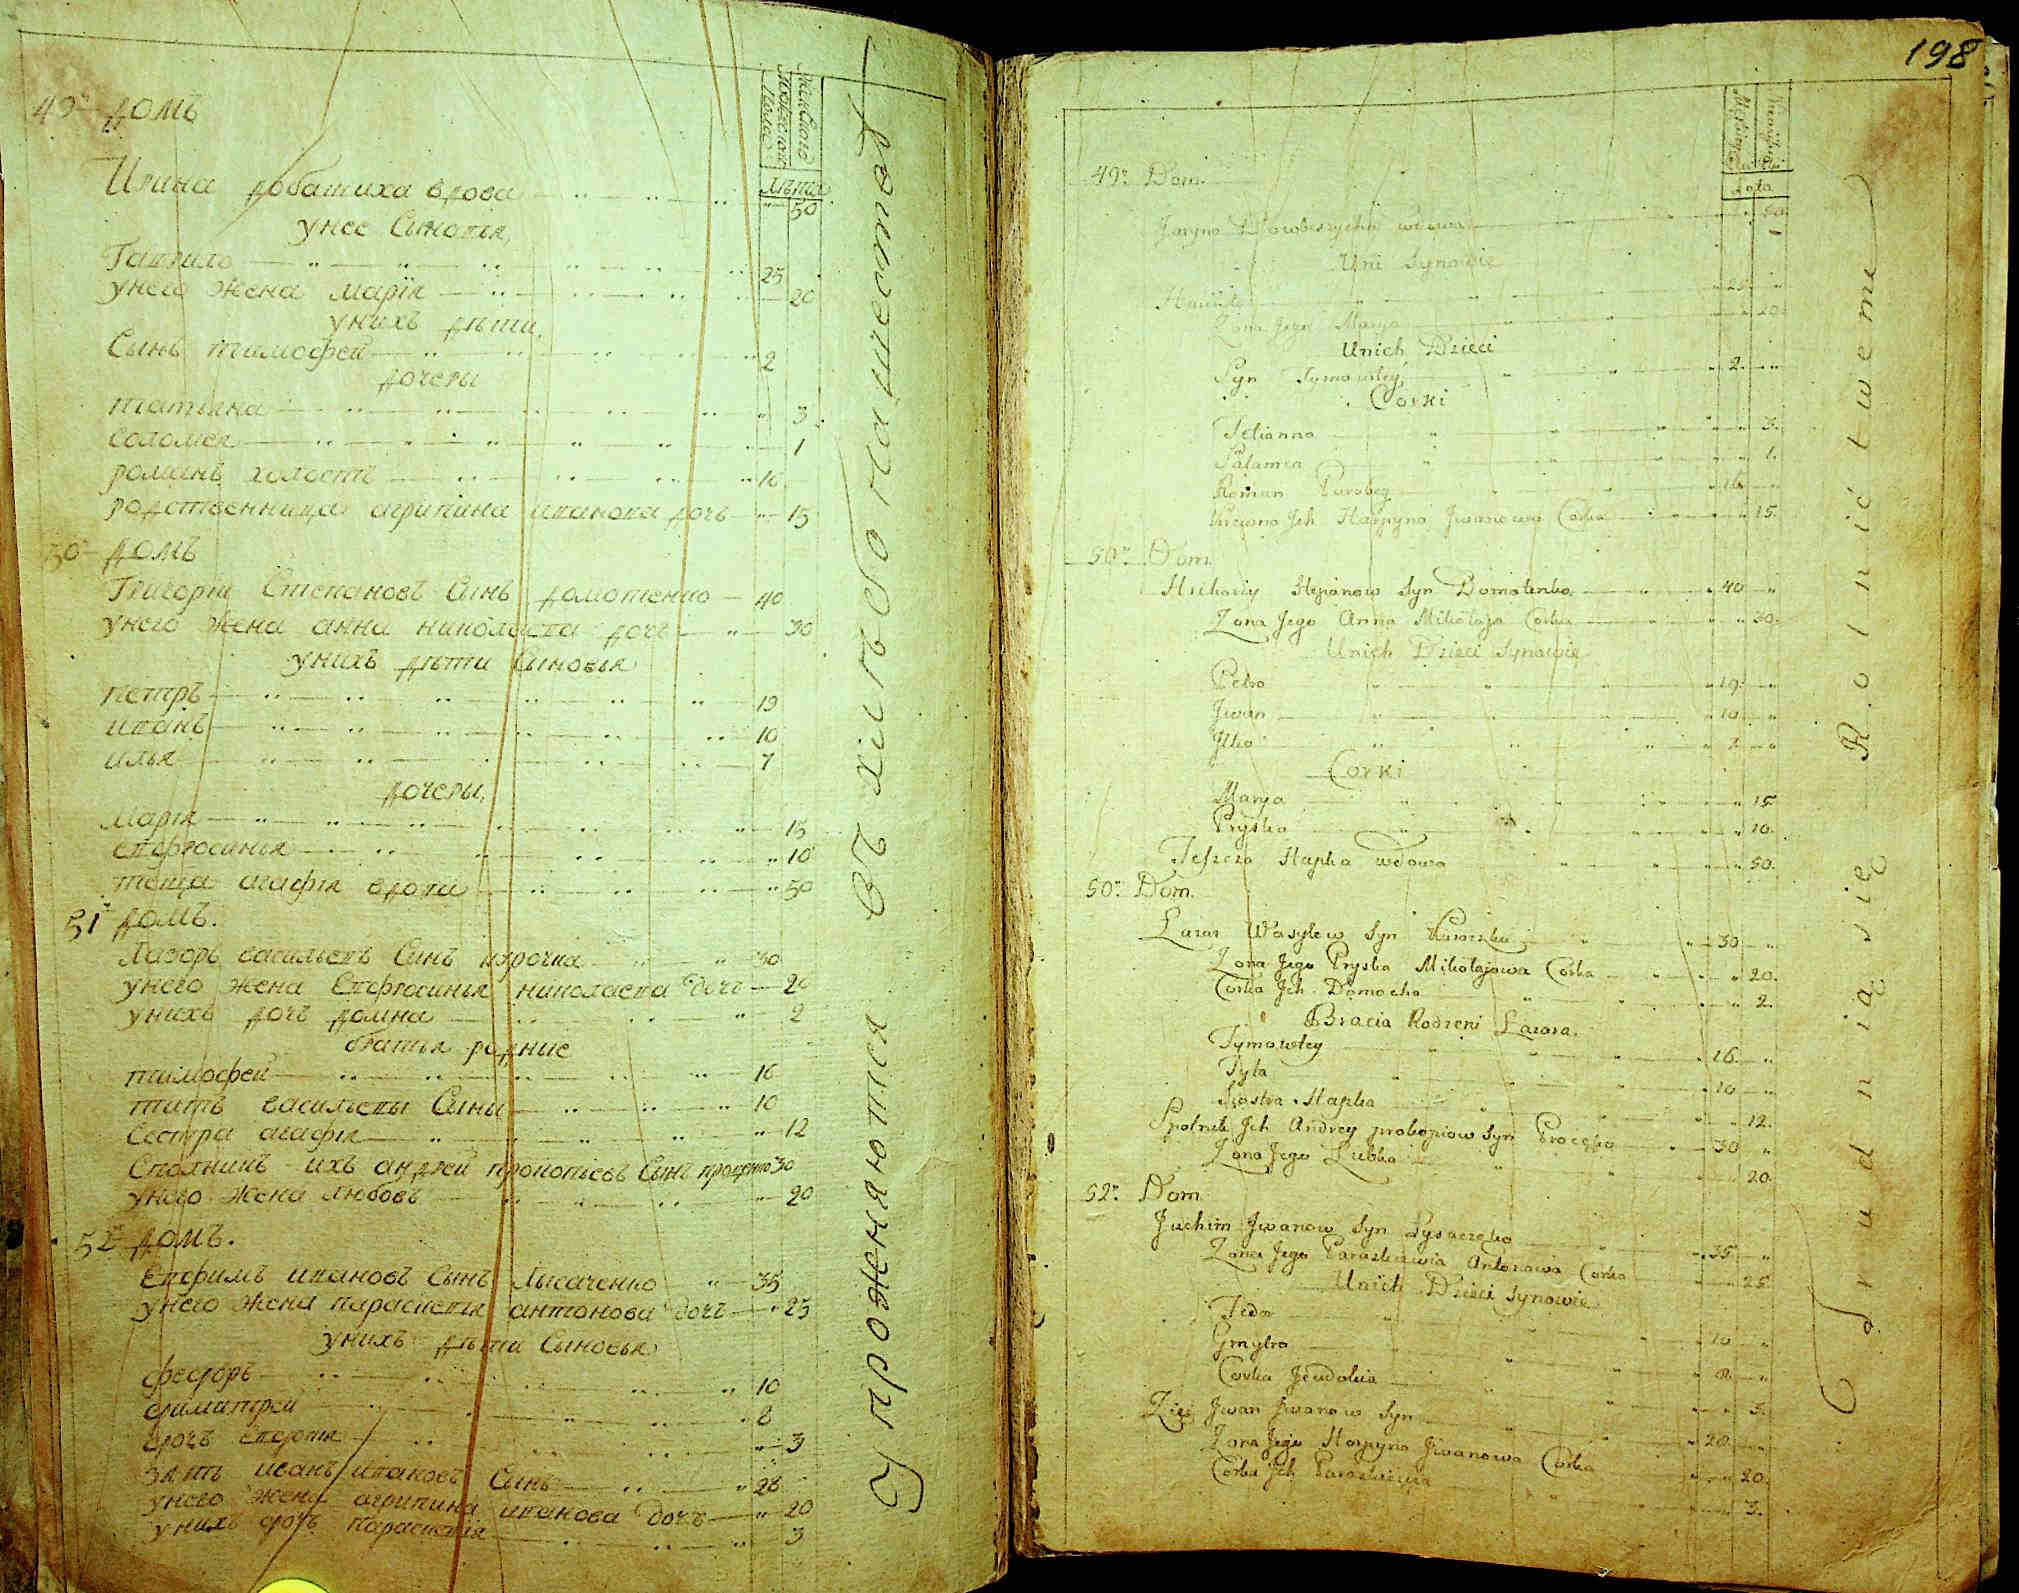 198
49й домъ
Женского
Мужеского
Пола
Лѣта
Ирина добашиха вдова 50
унее Сыновья
Гаврило 25
унего жена марія 20
унихъ дѣти
Сынъ тимофей 2
дочеры
татьяна 3
соломея 1
романъ холостъ 16
родственница агрипина иванова дочь 15
50 домъ
Григорій Степановъ Сынъ домотенко 40
унего жена анна николаева дочь 30
унихъ дѣти Сыновья
петръ 19
иванъ 10
илья 7
дочеры
марія 15
евфросинья 10
теща агафія вдова 50
51й домъ.
Лазорь васильевъ Сынъ 30
унего жена Евфросинья николаева дочь 20
унихъ дочь домна 2
братья родние
тимофей 16
титъ васильевы Сыны 10
Сестра агафія 12
Сполникъ ихъ андрей прокопіевъ Сынъ проценко 30
унего жена любовь 20
52й домъ.
Евфимъ ивановъ Сынъ Лысаченко 35
унего жена парасковія антонова дочь 25
унихъ дѣти Сыновья
федоръ 10
димитрей 8
дочь евдокія 3
зять иванъ ивановъ Сынъ 28
унего жена агрипина иванова дочь 20
унихъ дочь парасковія 3
Упрожняются въ хлѣбопашествѣ
49n. Dom.
Lata
Jaryna wdowa 50
Uni Synowie
Hawryło 25
Zona Jego Marya 20
Unich Dzieci
Syn Tymowtey 2
Corki
Tetianna 3.
Sałamea 1.
Roman Parobeg 16
Jch Harpyna Jwanowna Corka 15.
50n. Dom.
Hrihoriy Stepanow Syn Domotenko 40
Zona Jego Anna Mikołaja Corka 30.
Unich Dzieci Synowie
Petro 19
Jwan 10
Jlko 7
Corki
Marya 15
Pryska 10.
Teszcza Hapka wdowa 50.
50n. Dom.
Łazar Wasylew Syn 30
Zona Jego Pryska Mikołajowa Corka 20.
Corka Jch Domocha 2.
Bracia Rodzeni Łazora.
Tymowtey 16
Tyta 10
Siostra Hapka 12.
Spolnik Jch Andrey prokopiow Syn Procęko 30
Zona Jego Lubka 20.
52n. Dom
Juchim Jwanow Syn Łysaczęko 35
Zona Jego Paraskawia Antonowa Corka 25
Unich Dzieci Synowie
Fedor 10
Gmytro 8
Corka Jewdokia 3.
Zięć Jwan Jwanow Syn 28
Zona Jego Harpyna Jwanowa Corka 20.
Corka Jch Paraskewia 3.
Trudnią się Rolnictwem